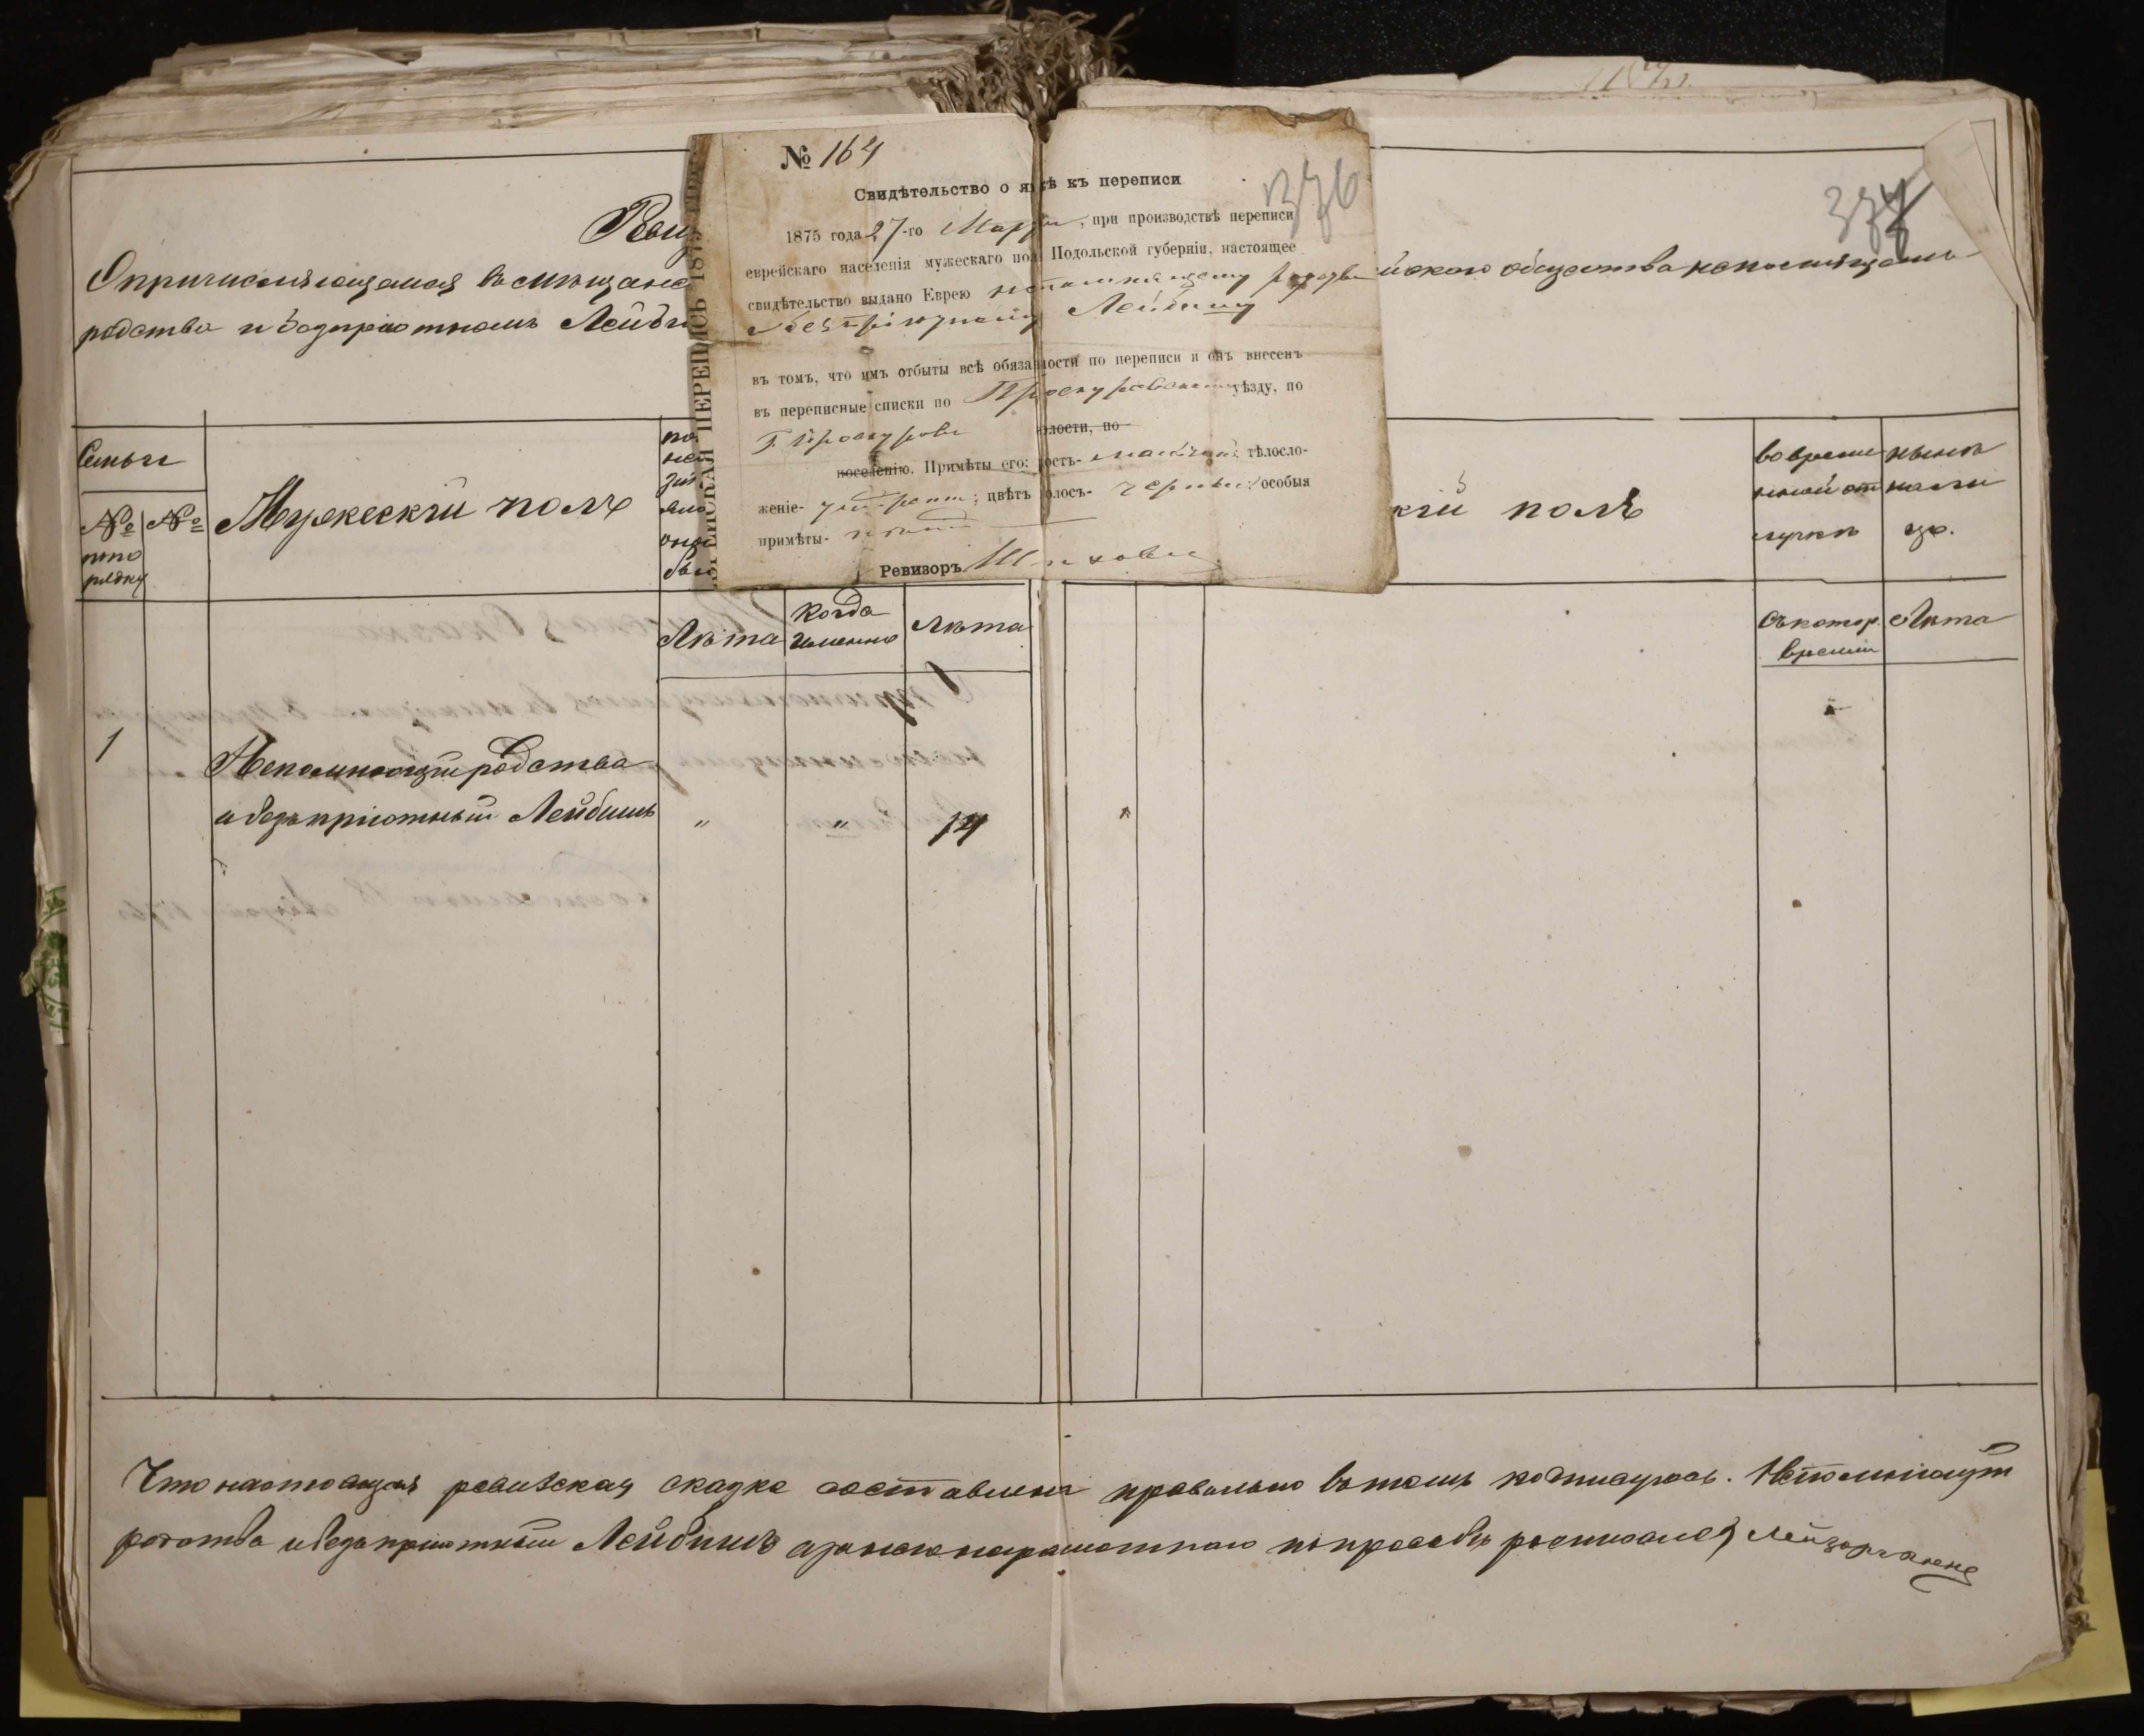 № 164
Свидѣтельство о явкѣ къ переписи
376
377
1875 года 27-го Марта, при производствѣ переписи
еврейскаго населенія мужескаго пола Подольской губерніи, настоящее
свидѣтельство выдано Еврею непомнящему родства
безпріютному Лейбишу
въ томъ, что имъ отбыты всѣ обязанности по переписи и онъ внесенъ
въ переписные списки по Проскуровскому уѣзду, по
Г. Проскурову волости, по
поселенію. Примѣты его: ростъ- малый; тѣлосло-
женіе- ; цвѣтъ волосъ- черный; особыя
примѣты-
Ревизоръ
ЕВРЕЙСКАЯ ПЕРЕПИСЬ 1875
О причисляющемся въ мѣщане йскаго общества непомнящемъ
родства и безпріютномъ Лейби
Семьи
№ по рядку
№
Мужескій полъ
кій полъ
во время
нной от
лучкѣ
нынѣ
на ли
цо.
Лѣта
Когда именно
Лѣта
Съ котор. времени
Лѣта
1
Непомнющій родства
и безъпріютный Лейбишъ " " 14
Что настоящая ревизская сказка составлена правильно въ томъ подписуюсь. Непомнющій
родства и безъпріютный Лейбишъ а за него неграмотнаго по просьбѣ росписался